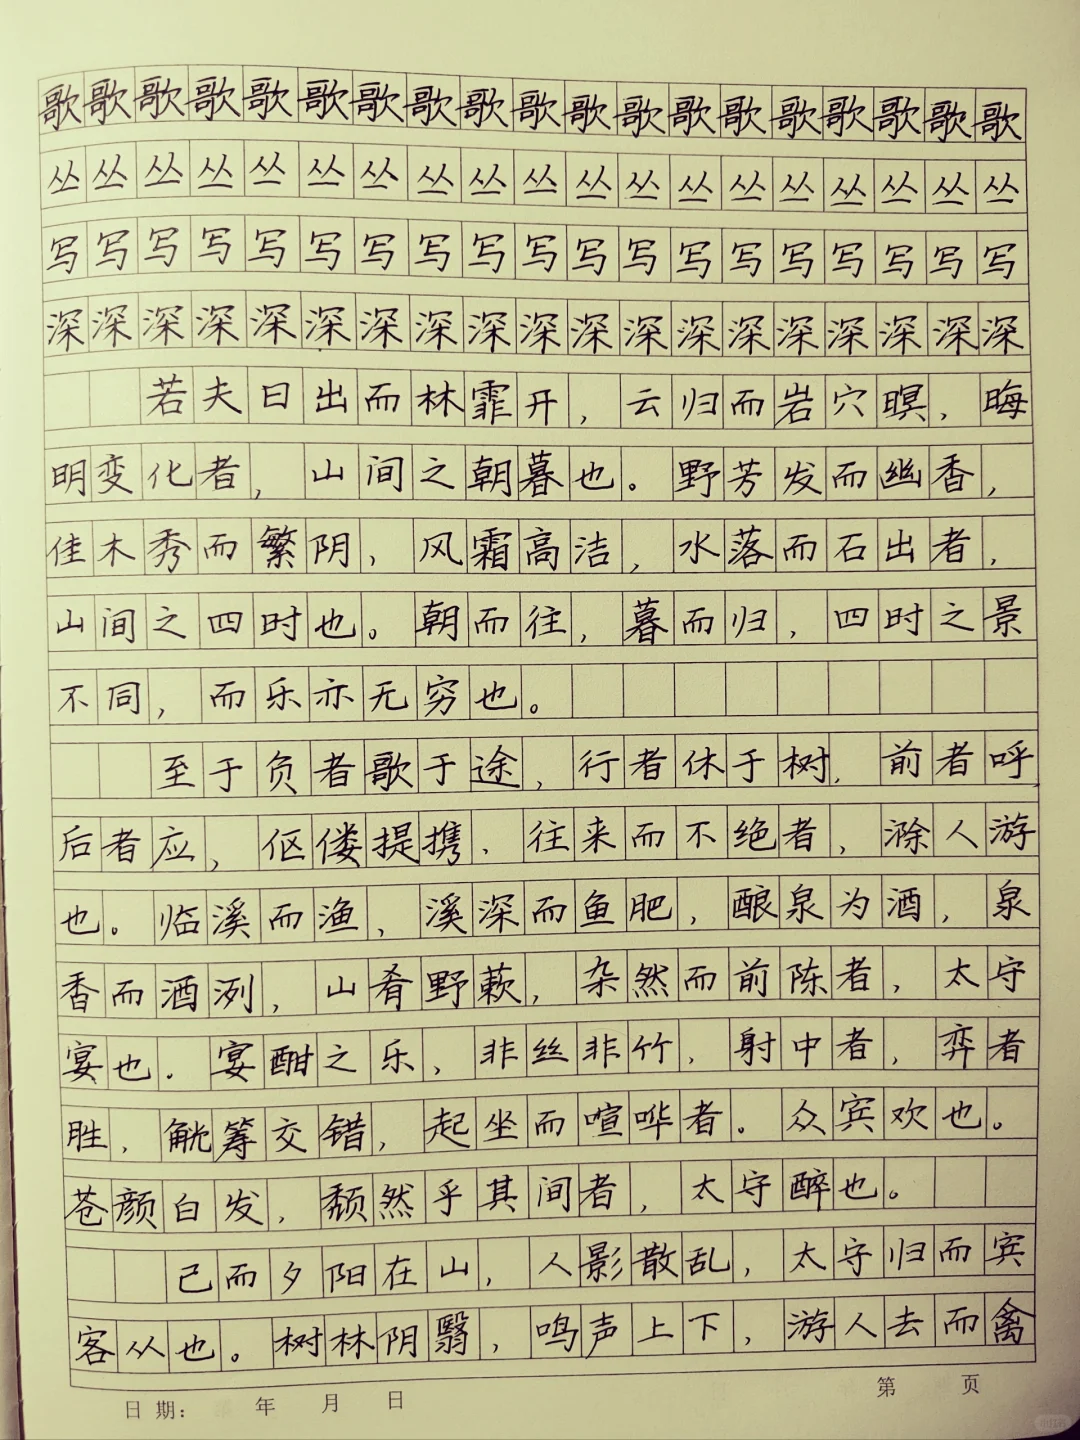 歌歌歌歌歌歌歌歌歌歌歌歌歌歌歌歌歌歌歌
丛丛丛丛丛丛丛丛丛丛丛丛丛丛丛丛丛丛丛
写写写写写写写写写写写写写写写写写写写
深深深深深深深深深深深深深深深深深深深
若夫日出而林霏开，云归而岩穴暝，晦
明变化者，山间之朝暮也。野芳发而幽香，
佳木秀而繁阴，风霜高洁，水落而石出者，
山间之四时也。朝而往，暮而归，四时之景
不同，而乐亦无穷也。
至于负者歌于途，行者休于树，前者呼
后者应，伛偻提携，往来而不绝者，滁人游
也。临溪而渔，溪深而鱼肥，酿泉为酒，泉
香而酒洌，山肴野蔌，杂然而前陈者，太守
宴也．宴酣之乐，非丝非竹，射中者，弈者
胜，觥筹交错，起坐而喧哗者。众宾欢也。
苍颜白发，颓然乎其间者，太守醉也。
已而夕阳在山，人影散乱，太守归而宾
客从也。树林阴翳，鸣声上下，游人去而禽
日期： 年 月 日 第 页